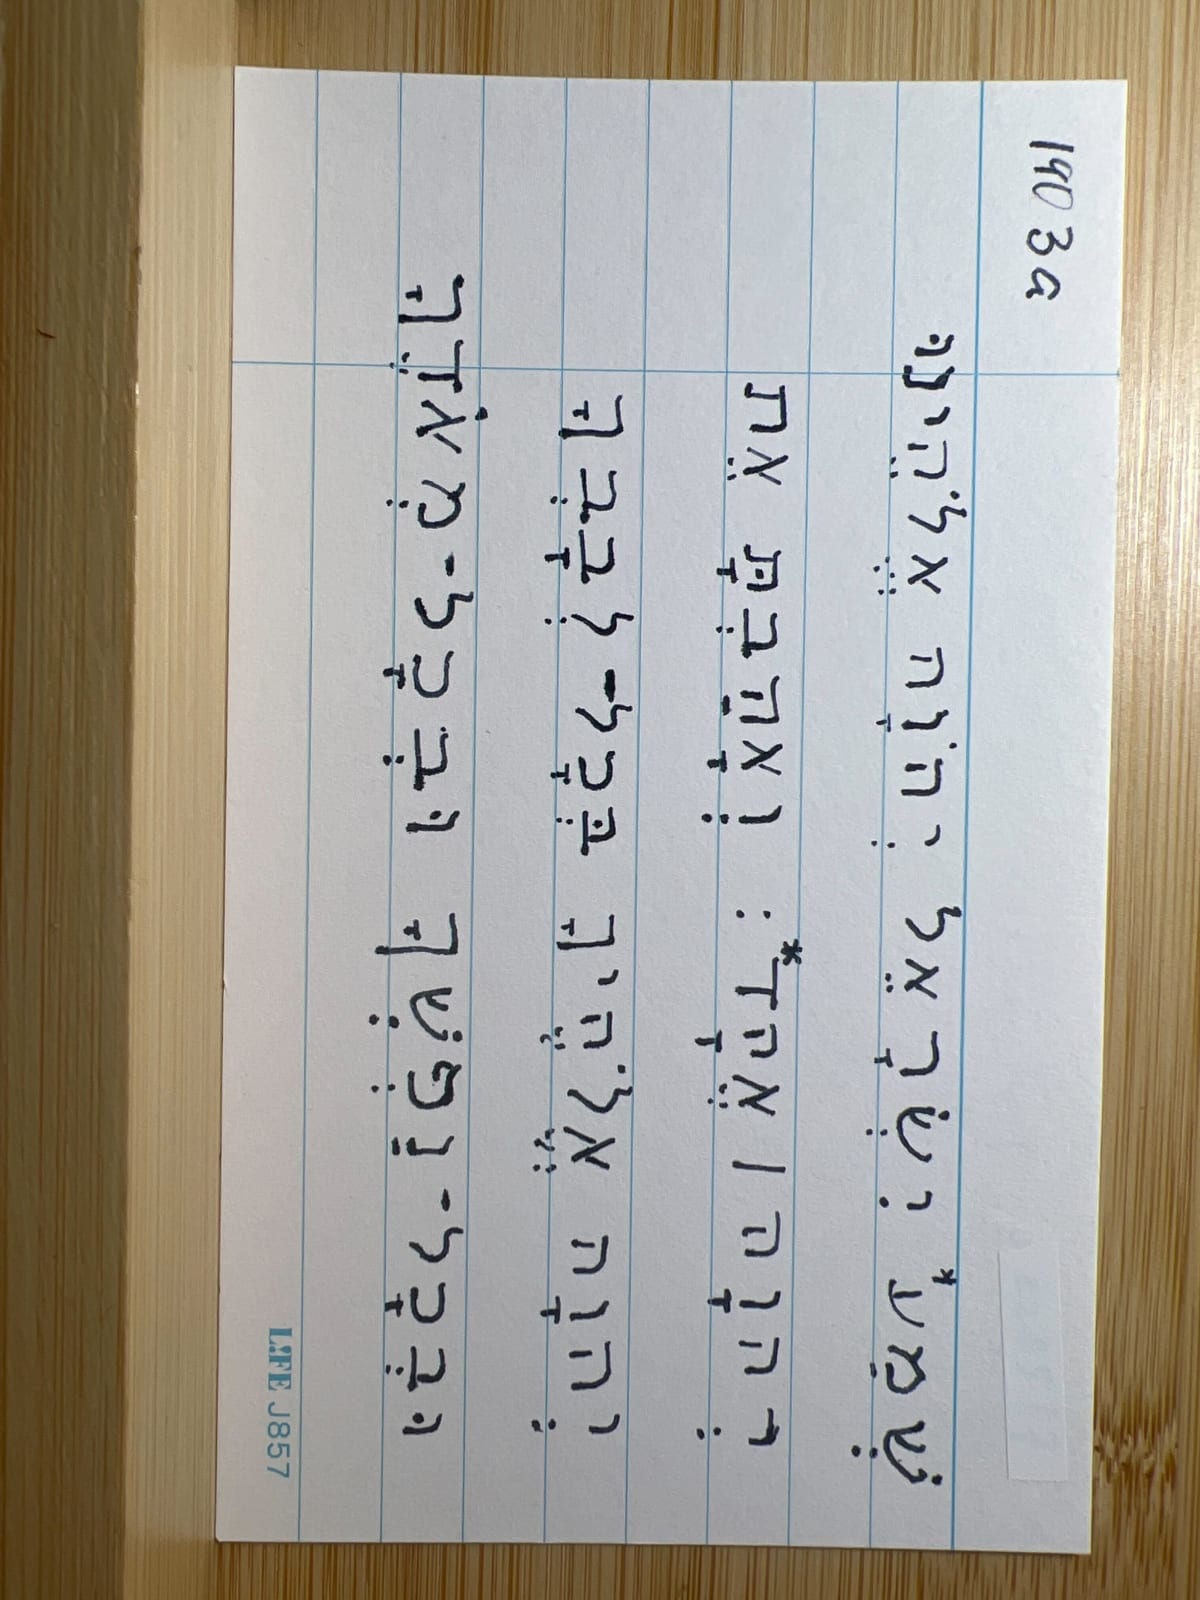 190 3a
שְׁמַע* יִשְׂרָאֵל יְהֹוָה אֱלֹהֵינוּ
יְהוָה | אֶחָד* : וְאָהַבְתָּ אֵת
יְהוָה אֱלֹהֶיךָ בְּכָל-לְבָבְךָ
וּבְכָל-נַפְשְׁךָ וּבְכָל-מְאֹדֶךָ
LIFE J857